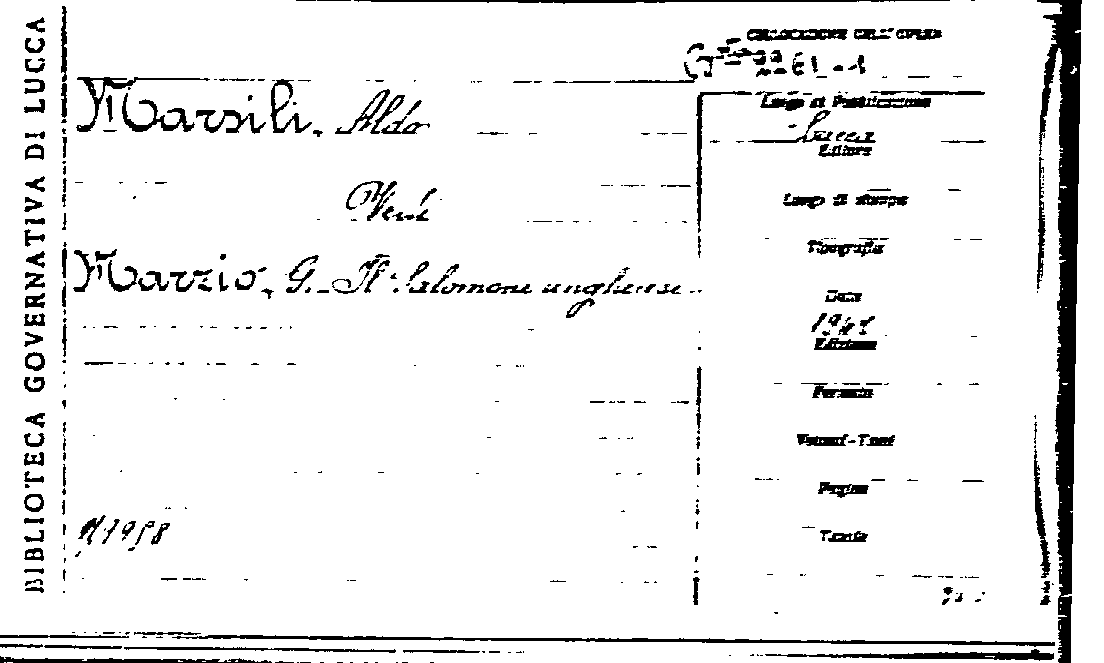 BIBLIOTECA GOVERNATIVA DI LUCCA
COLLOCAZIONE DELL'OPERA
Marsili, Aldo
Vedi
Marzio, G. Il Salomone unghense
Luogo di Pubblicazione
Lucca
Editore
Luogo di stampa
Tipografia
Data
Edizione
Formato
Volumi-Tomi
Pagine
Tavole